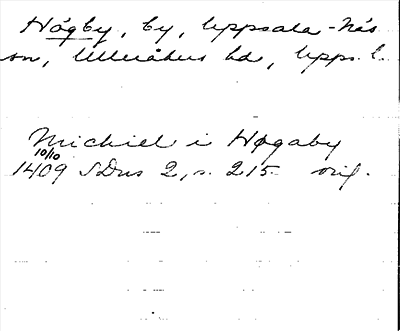 Högby, by, Uppsala-Näs
sn, Ulleråkers hd, Upps. l.
Michiel i Høgaby
10/10
1409 SDns 2, s. 215 orig.